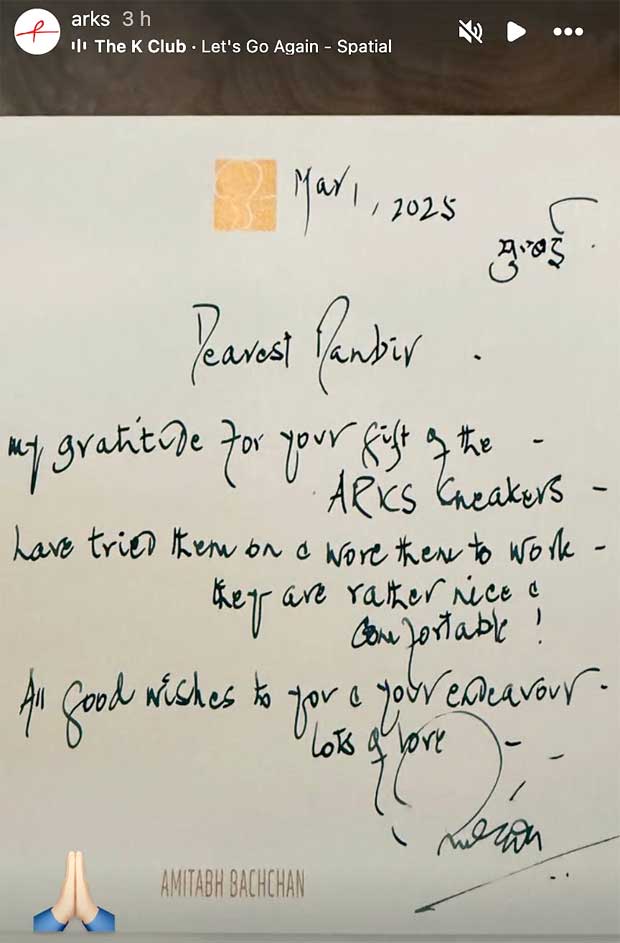 arks 3 h
The K Club · Let's Go Again - Spatial
Mar 1, 2025
मुंबई.
Dearest Ranbir.
my gratitude for your gift of the -
ARKS Sneakers -
have tried them on & wore them to work -
they are rather nice &
comfortable !
All good wishes to you & your endeavour -
lots of love -
AMITABH BACHCHAN